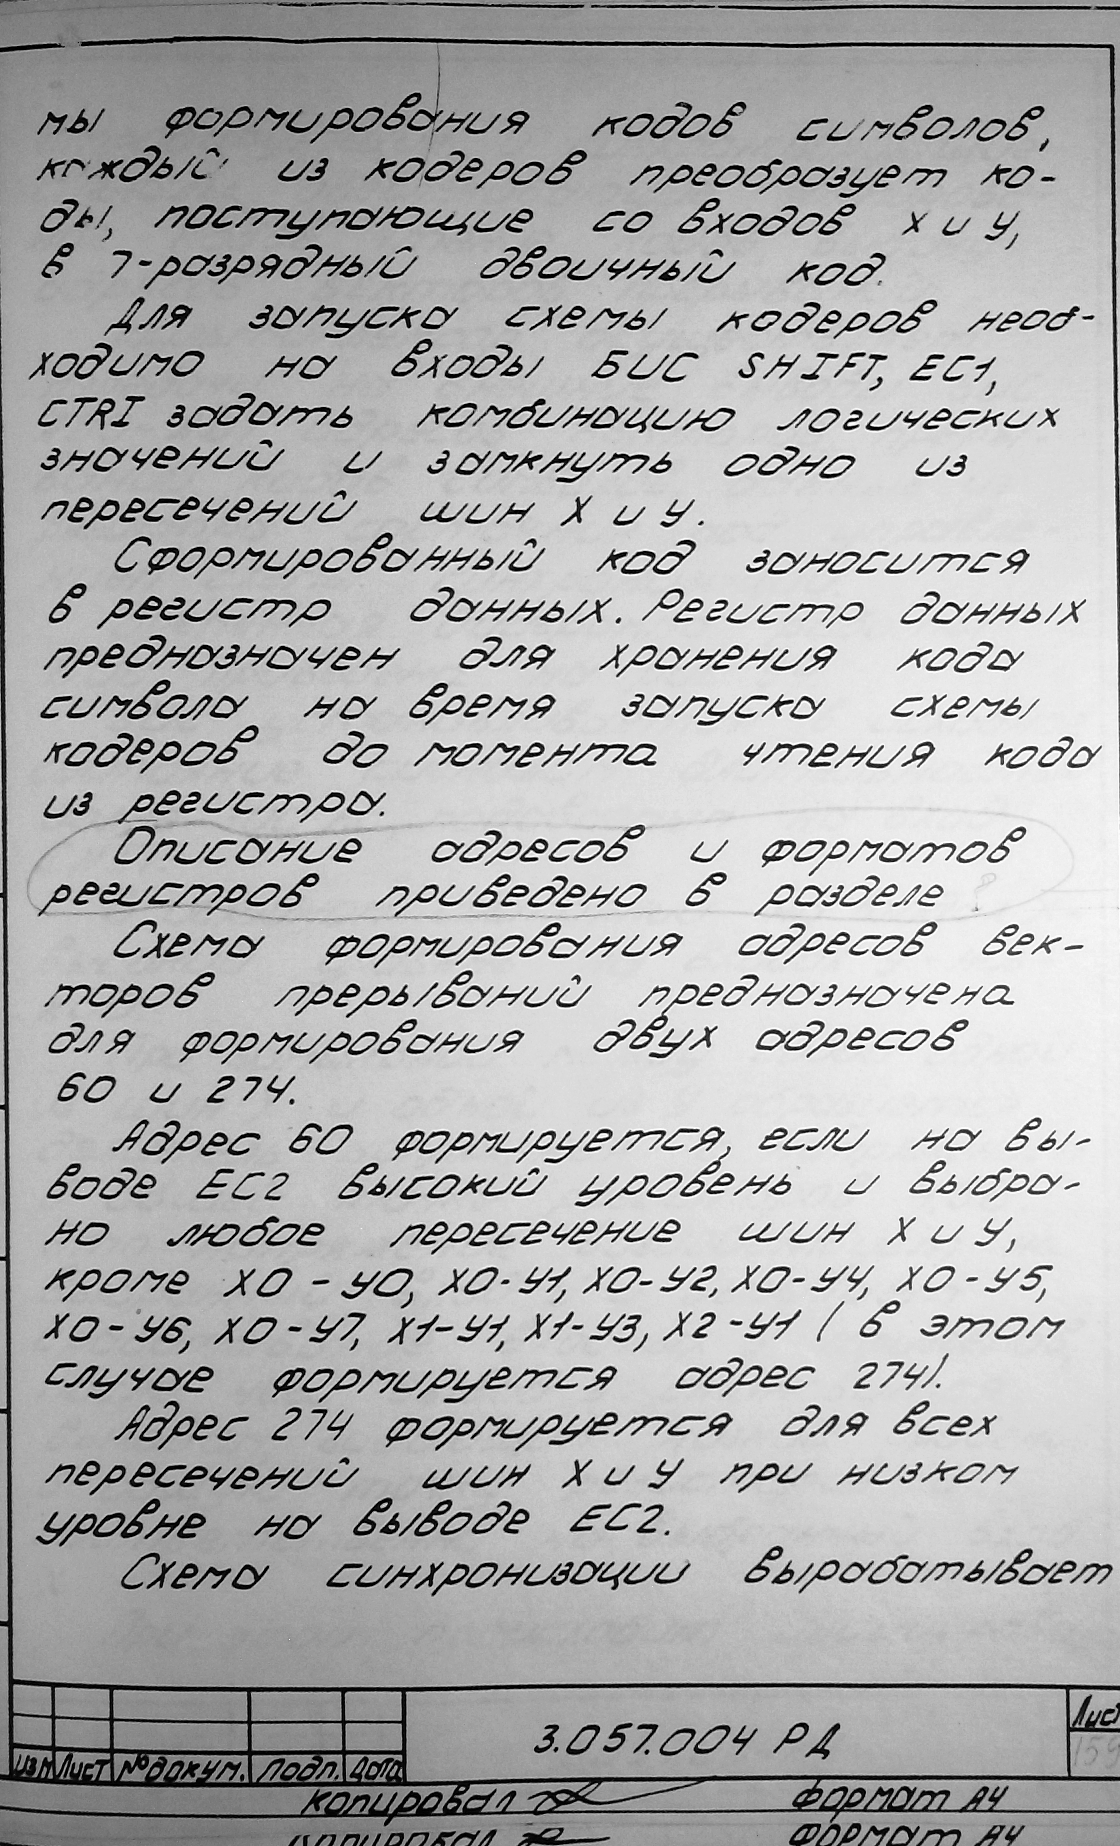 мы формирования кодов символов,
каждый из кодеров преобразует ко-
ды, поступающие со входов X и У,
в 7-разрядный двоичный код.
Для запуска схемы кодеров необ-
ходимо на входы БИС SHIFT, EC1,
CTRI задать комбинацию логических
значений и замкнуть одно из
пересечений шин X и У.
Сформированный код заносится
в регистр данных. Регистр данных
предназначен для хранения кода
символа на время запуска схемы
кодеров до момента чтения кода
из регистра.
Описание адресов и форматов
регистров приведено в разделе ?
Схема формирования адресов век-
торов прерываний предназначена
для формирования двух адресов
60 и 274.
Адрес 60 формируется, если на вы-
воде EC2 высокий уровень и выбра-
но любое пересечение шин X и У,
кроме X0 - У0, X0-У1, X0-У2, X0-У4, X0-У5,
X0-У6, X0-У7, X1-У1, X1-У3, X2-У1 ( в этом
случае формируется адрес 274).
Адрес 274 формируется для всех
пересечений шин X и У при низком
уровне на выводе EC2.
Схема синхронизации вырабатывает
3.057.004 РД
Лист
159
Изм Лист № докум. Подп. Дата
Копировал Формат А4
Копировал Формат А4